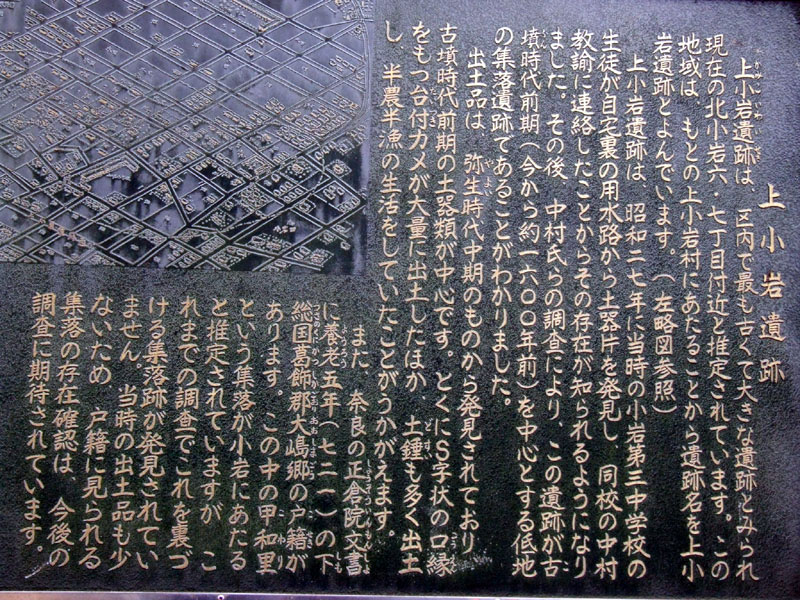 上小岩遺跡
上小岩遺跡は、区内で最も古くて大きな遺跡とみられ
現在の北小岩六・七丁目付近と推定されています。この
地域は、もとの上小岩村にあたることから遺跡名を上小
岩遺跡とよんでいます。(左略図参照)
上小岩遺跡は、昭和二七年に当時の小岩第三中学校の
生徒が自宅裏の用水路から土器片を発見し、同校の中村
教諭に連絡したことからその存在が知られるようになり
ました。その後、中村氏らの調査により、この遺跡が古
墳時代前期(今から約一六〇〇年前)を中心とする低地
の集落遺跡であることがわかりました。
出土品は、弥生時代中期のものから発見されており
古墳時代前期の土器類が中心です。とくにS字状の口縁
をもつ台付カメが大量に出土したほか、土錘も多く出土
し、半農半漁の生活をしていたことがうかがえます。
また、奈良の正倉院文書
に養老五年(七二一)の下
総国葛飾郡大嶋郷の戸籍が
あります。この中の甲和里
という集落が小岩にあたる
と推定されていますが、こ
れまでの調査でこれを裏づ
ける集落跡が発見されてい
ません。当時の出土品も少
ないため、戸籍に見られる
集落の存在確認は、今後の
調査に期待されています。